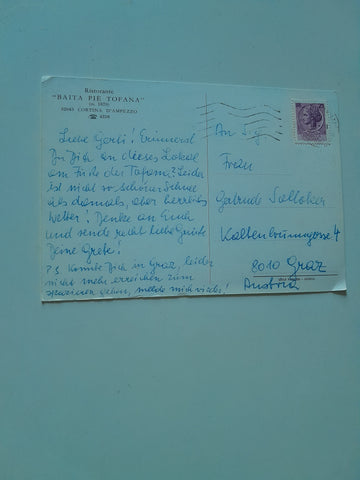 Ristorante
"BAITA PIÈ TOFANA"
32043 CORTINA D'AMPEZZO
☎ 4258
Liebe Gerti! Erinnerst
Du Dich an dieses Lokal
am Fuße der Tofana? Leider
ist nicht so schöner Schnee
als damals, aber herrlich
Wetter! Denke an Euch
und sende recht liebe Grüße
Deine Grete!
P.S. Konnte Dich in Graz, leider
nicht mehr erreichen zum
gehen, melde mich wieder!
An
Frau
Gertrude
8010 Graz
Austria